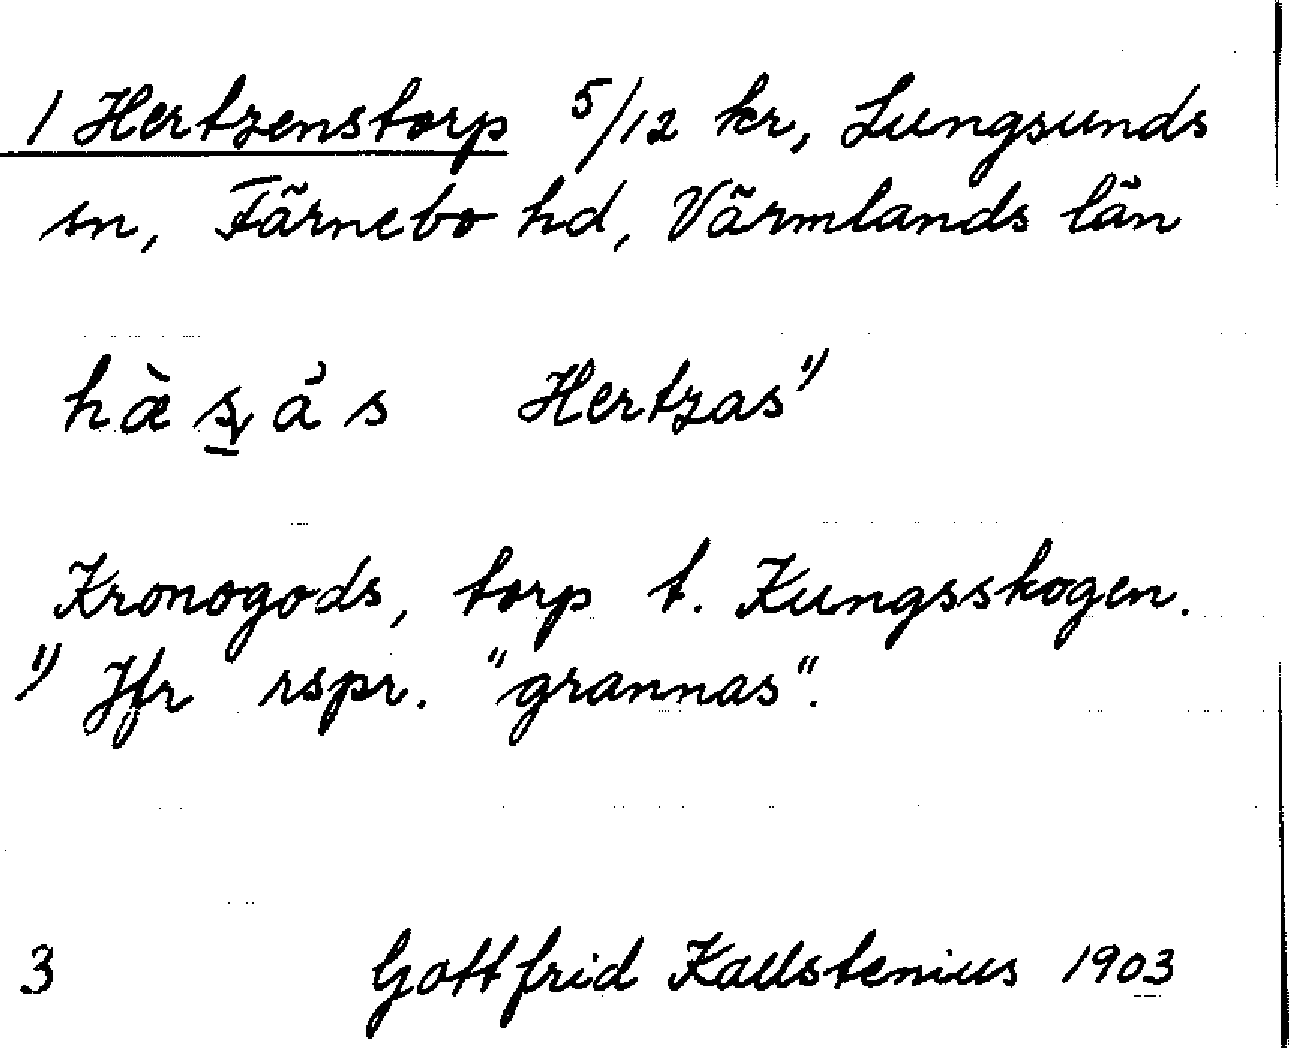 1 Hertzenstorp 5/12 kr, Lungsunds
sn, Färnebo hd, Värmlands län
Hertzas 1)
Kronogods, torp t. Kungsskogen.
1) Jfr rspr. "grannas".
3 Gottfrid Kallstenius 1903